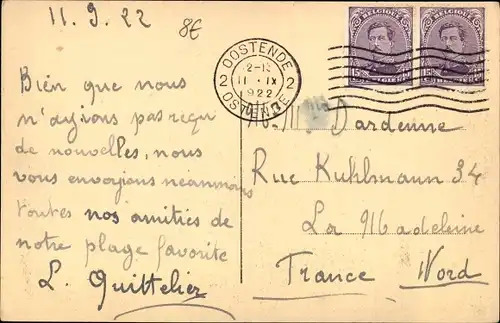 11.9.22
8E
Bien que nous
n'ayions pas reçu
de nouvelles, nous
vous envoyions néanmoins
toutes nos amitiés de
notre plage favorite
L. Quittelier
OOSTENDE
2 2
11 · IX
1922
OSTENDE
BELGIQUE BELGIQUE
BELGIË BELGIË
M. Dardenne
Rue Kuhlmann 34
La Madeleine
France Nord